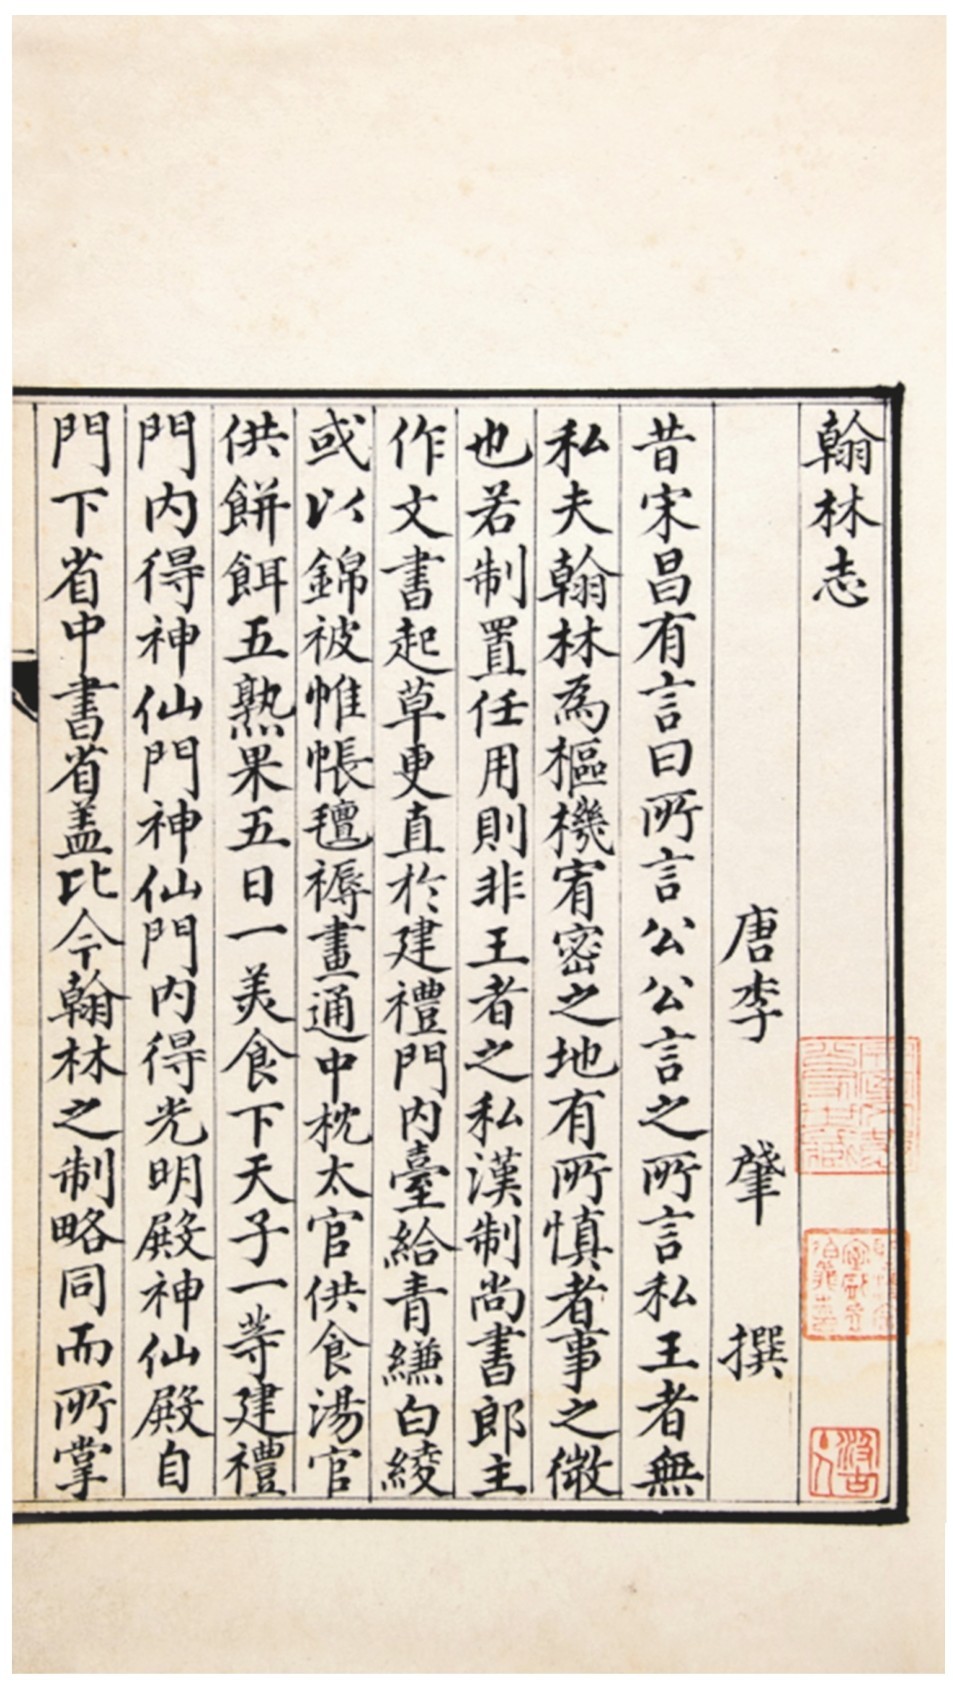 翰林志
唐李肇撰
昔宋昌有言曰所言公公言之所言私王者無
私夫翰林為樞機宥密之地有所慎者事之微
也若制置任用則非王者之私漢制尚書郎主
作文書起草更直於建禮門内臺給青縑白綾
或以錦被帷帳氊褥畫通中枕太官供食湯官
供餅餌五熟果五日一美食下天子一等建禮
門内得神仙門神仙門内得光明殿神仙殿自
門下省中書省盖比今翰林之制略同而所掌